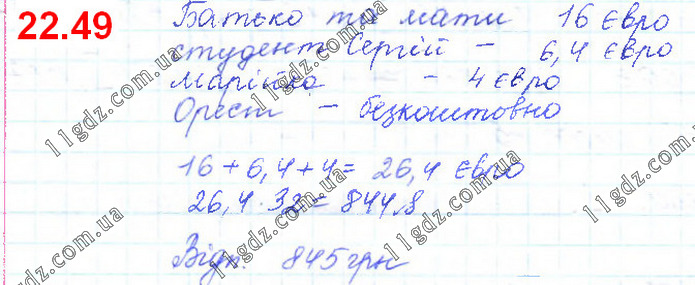 22.49
Батько та мати 16 євро
студент Сергій – 6,4 євро
Марійка – 4 євро
Орест – безкоштовно
16 + 6,4 + 4 = 26,4 євро
26,4 · 32 = 844,8
Відп. 845 грн
11gdz.com.ua
11gdz.com.ua
11gdz.com.ua
11gdz.com.ua
11gdz.com.ua
11gdz.com.ua